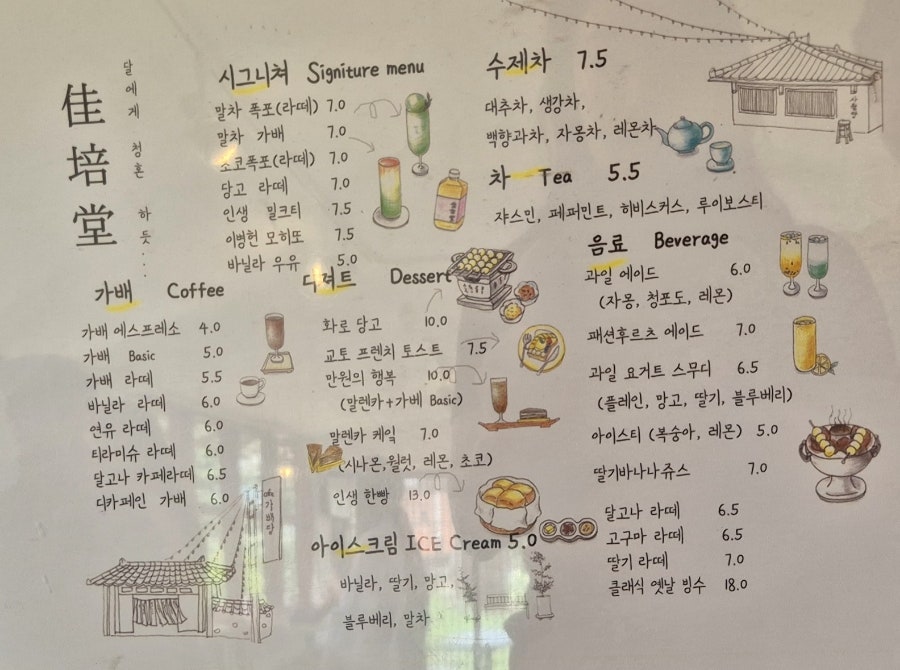 佳培堂
달에게 청혼 하듯...
시그니쳐 Signiture menu
말차 폭포(라떼) 7.0
말차 가배 7.0
쵸코폭포(라떼) 7.0
당고 라떼 7.0
인생 밀크티 7.5
이병헌 모히또 7.5
바닐라 우유 5.0
가배 Coffee
가배 에스프레소 4.0
가배 Basic 5.0
가배 라떼 5.5
바닐라 라떼 6.0
연유 라떼 6.0
티라미슈 라떼 6.0
달고나 카페라떼 6.5
디카페인 가배 6.0
디저트 Dessert
화로 당고 10.0
교토 프렌치 토스트 7.5
만원의 행복 10.0
(말렌카+가베 Basic)
말렌카 케잌 7.0
(시나몬,월넛, 레몬, 초코)
인생 한빵 13.0
아이스크림 ICE Cream 5.0
바닐라, 딸기, 망고,
블루베리, 말차
수제차 7.5
대추차, 생강차,
백향과차, 자몽차, 레몬차
차 Tea 5.5
쟈스민, 페퍼민트, 히비스커스, 루이보스티
음료 Beverage
과일 에이드 6.0
(자몽, 청포도, 레몬)
패션후르츠 에이드 7.0
과일 요거트 스무디 6.5
(플레인, 망고, 딸기, 블루베리)
아이스티 (복숭아, 레몬) 5.0
딸기바나나쥬스 7.0
달고나 라떼 6.5
고구마 라떼 6.5
딸기 라떼 7.0
클래식 옛날 빙수 18.0